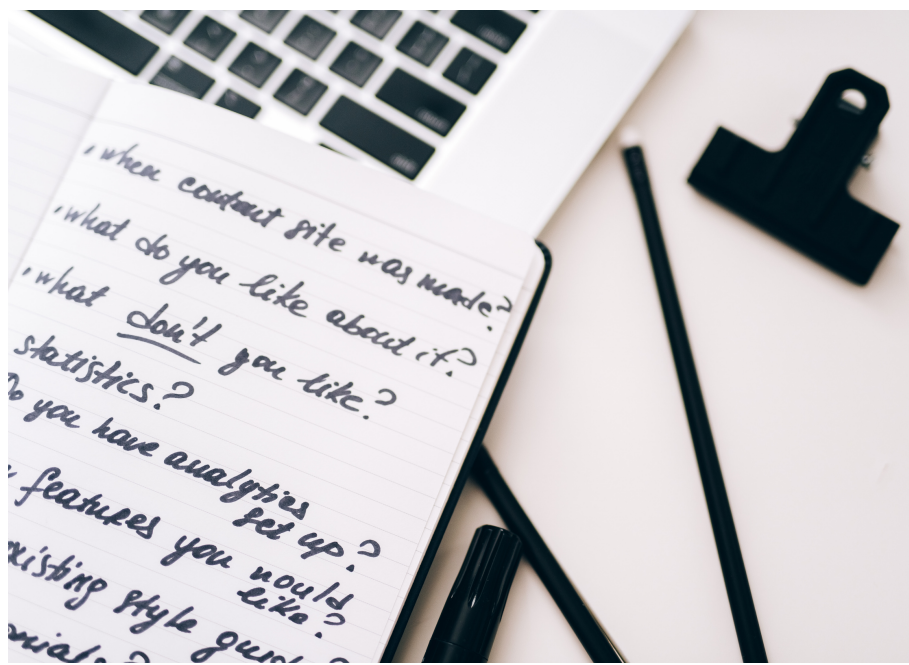 , when content site was made?
, what do you like about it?
, what don't you like?
statistics?
Do you have analytics
set up?
features you would
like?
existing style guide?